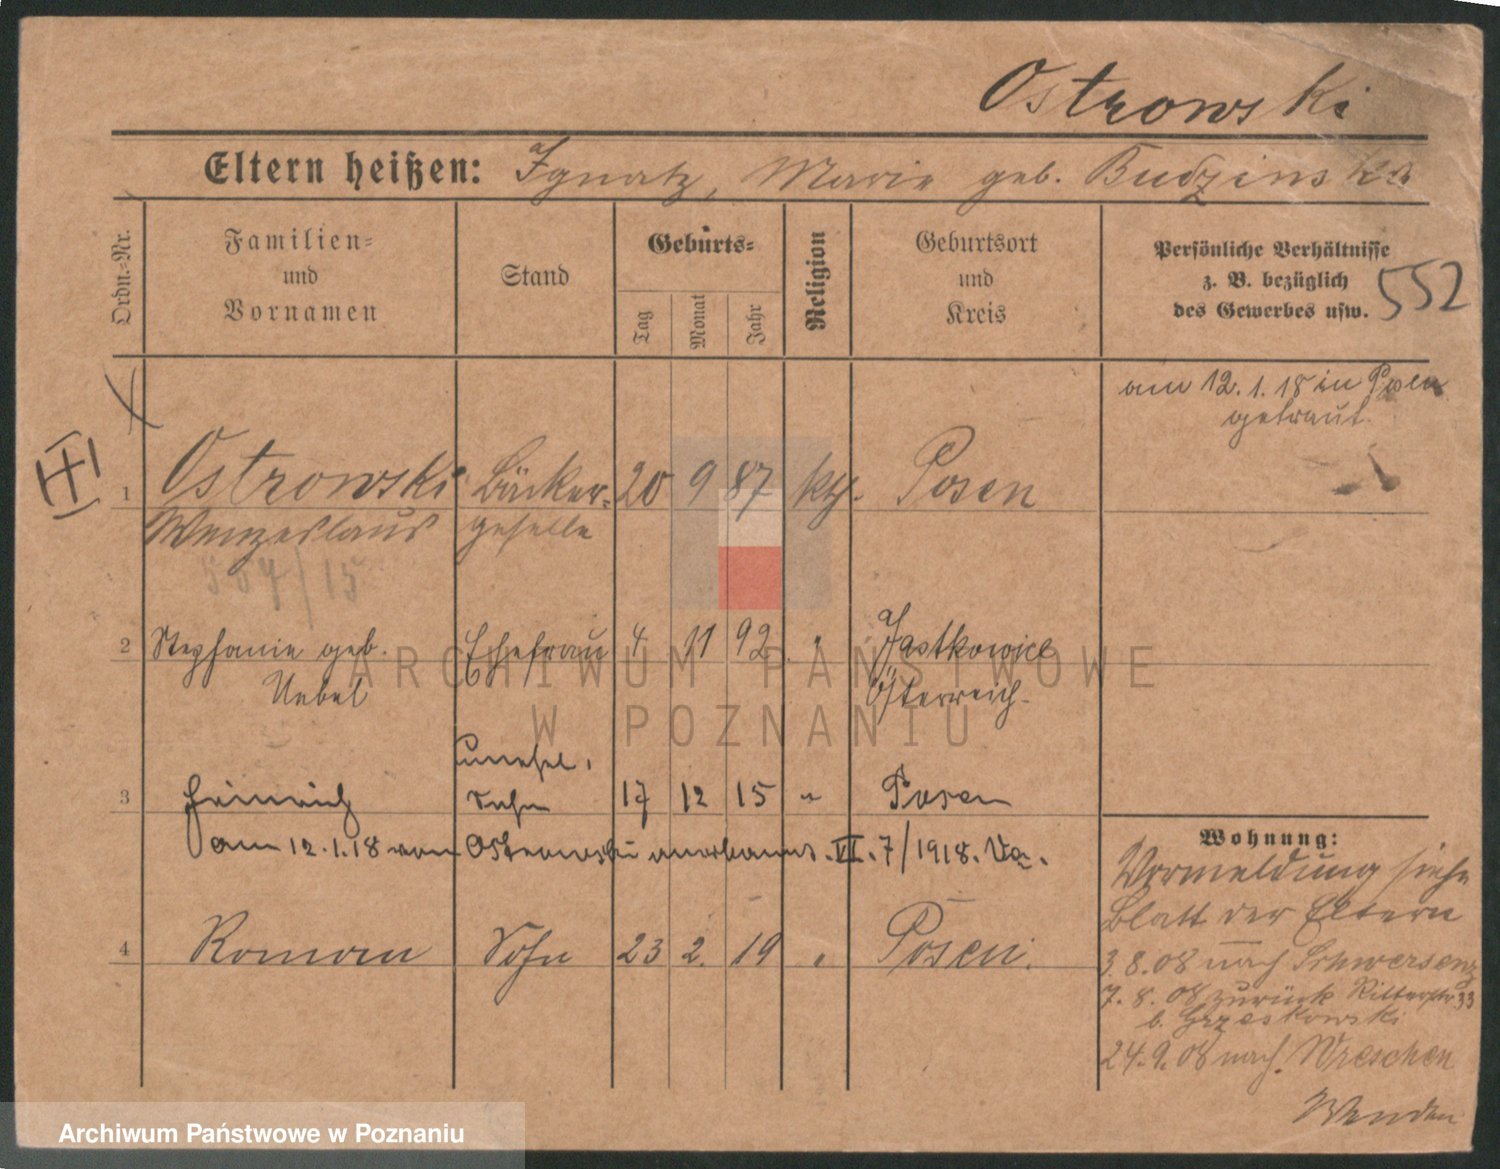 Ostrowski
Eltern heißen: Ignatz, Marie geb. Budzinska
Ordn.-Nr.
Familien-
und
Vornamen
Stand
Geburts-
Tag
Monat
Jahr
Religion
Geburtsort
und
Kreis
Persönliche Verhältnisse
z. B. bezüglich
des Gewerbes usw.
552
am 12.1.18 in Posen
getraut.
1 Ostrowski Bäcker- 20 9 87 kth. Posen
Wenzeslaus geselle
567/15
2 Stephanie geb. Ehefrau 4. 11 92 " Jastkowice
Uebel Österreich.
unehel.
3 Heinrich Sohn 17 12 15 " Posen
am 12.1.18 vom Ostrowski anerkannt. VI. 7/1918.
4 Roman Sohn 23 2. 19 " Posen.
Wohnung:
Vormeldung siehe
Blatt der Eltern
3.8.08 nach Schwersenz
7.8.08 zurück Ritterstr 33
b. Grzeskowski
24.9.08 nach Wreschen
Wenden
ARCHIWUM PAŃSTWOWE
W POZNANIU
Archiwum Państwowe w Poznaniu